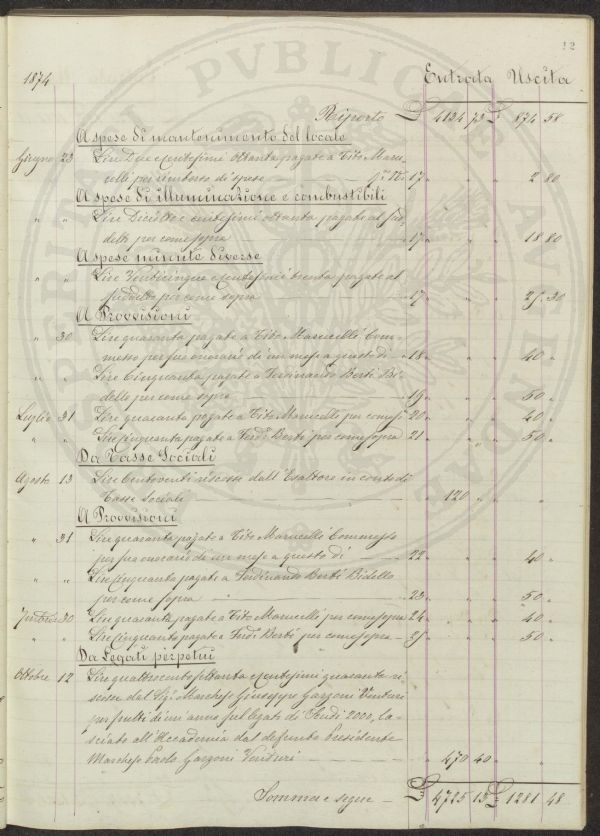 12
1874 Entrata Uscita
Riporto £ 4134 73 £ 874 58
A spese di mantenimento del locale
Giugno 23 Lire Due e centesimi Ottanta pagate a Tito Maru-
celli per rimborso di spese 17 2 80
A spese di illuminazione e combustibili
" " Lire Diciotto e centesimi ottanta pagate al Sud-
detto per come sopra 17 18 80
A spese minute diverse
" " Lire Venticinque e centesimi trenta pagate al
suddetto per come sopra 17 25 30
A Provvisioni
" 30 Lire quaranta pagate a Tito Marucelli Com-
messo per suo onorario di un mese a questo dì 18 40 "
" " Lire Cinquanta pagate a Ferdinando Berti Bi-
dello per come sopra 19 50 "
Luglio 31 Lire quaranta pagate a Tito Marucelli per come sopra 20 40 "
" " Lire Cinquanta pagate a Ferd. Berti per come sopra 21 50 "
Da Tasse Sociali
Agosto 13 Lire Centoventi riscosse dall'Esattore in conto di
Tasse Sociali 120 "
A Provvisioni
" 31 Lire quaranta pagate a Tito Marucelli Commesso
per suo onorario di un mese a questo dì 22 40 "
" " Lire Cinquanta pagate a Ferdinando Berti Bidello
per come sopra 23 50 "
7mbre 30 Lire quaranta pagate a Tito Marucelli per come sopra 24 40 "
" " Lire Cinquanta pagate a Ferd. Berti per come sopra 25 50 "
Da Legati perpetui
Ottobre 12 Lire quattrocento settanta e centesimi quaranta ri-
scosse dal Sig. Marchese Giuseppe Garzoni Venturi
per frutti di un anno sul legato di Scudi 2000, la-
sciato all'Accademia dal defunto Presidente
Marchese Paolo Garzoni Venturi 470 40
Somma e segue £ 4725 13 £ 1281 48